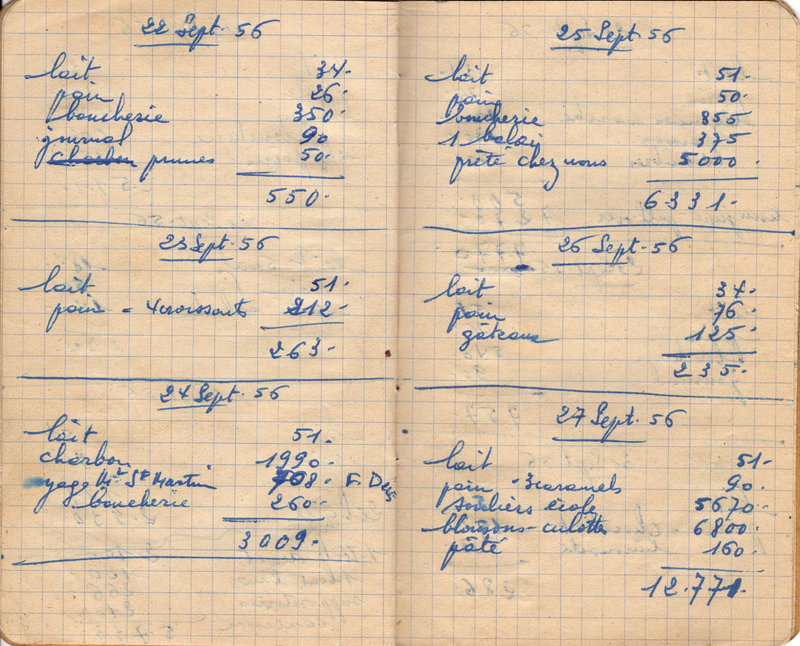 22 Sept. 56
lait 34.
pain 26.
boucherie 350.
journal 90
charbon prunes 50.
550.
23 Sept. 56
lait 51.
pain - 4 croissants 212.
263.
24 Sept. 56
lait 51.
charbon 1990.
St Martin 708. F.
boucherie 260.
3009.
25 Sept 56
lait 51.
pain 50.
boucherie 855
1 balai 375
prête chez nous 5000.
6331.
26 Sept 56
lait 34.
pain 76.
gâteaux 125.
235.
27 Sept. 56
lait 51.
pain - 3 caramels 90.
souliers école 5670.
blousons - culottes 6800.
pâté 160.
12.771.